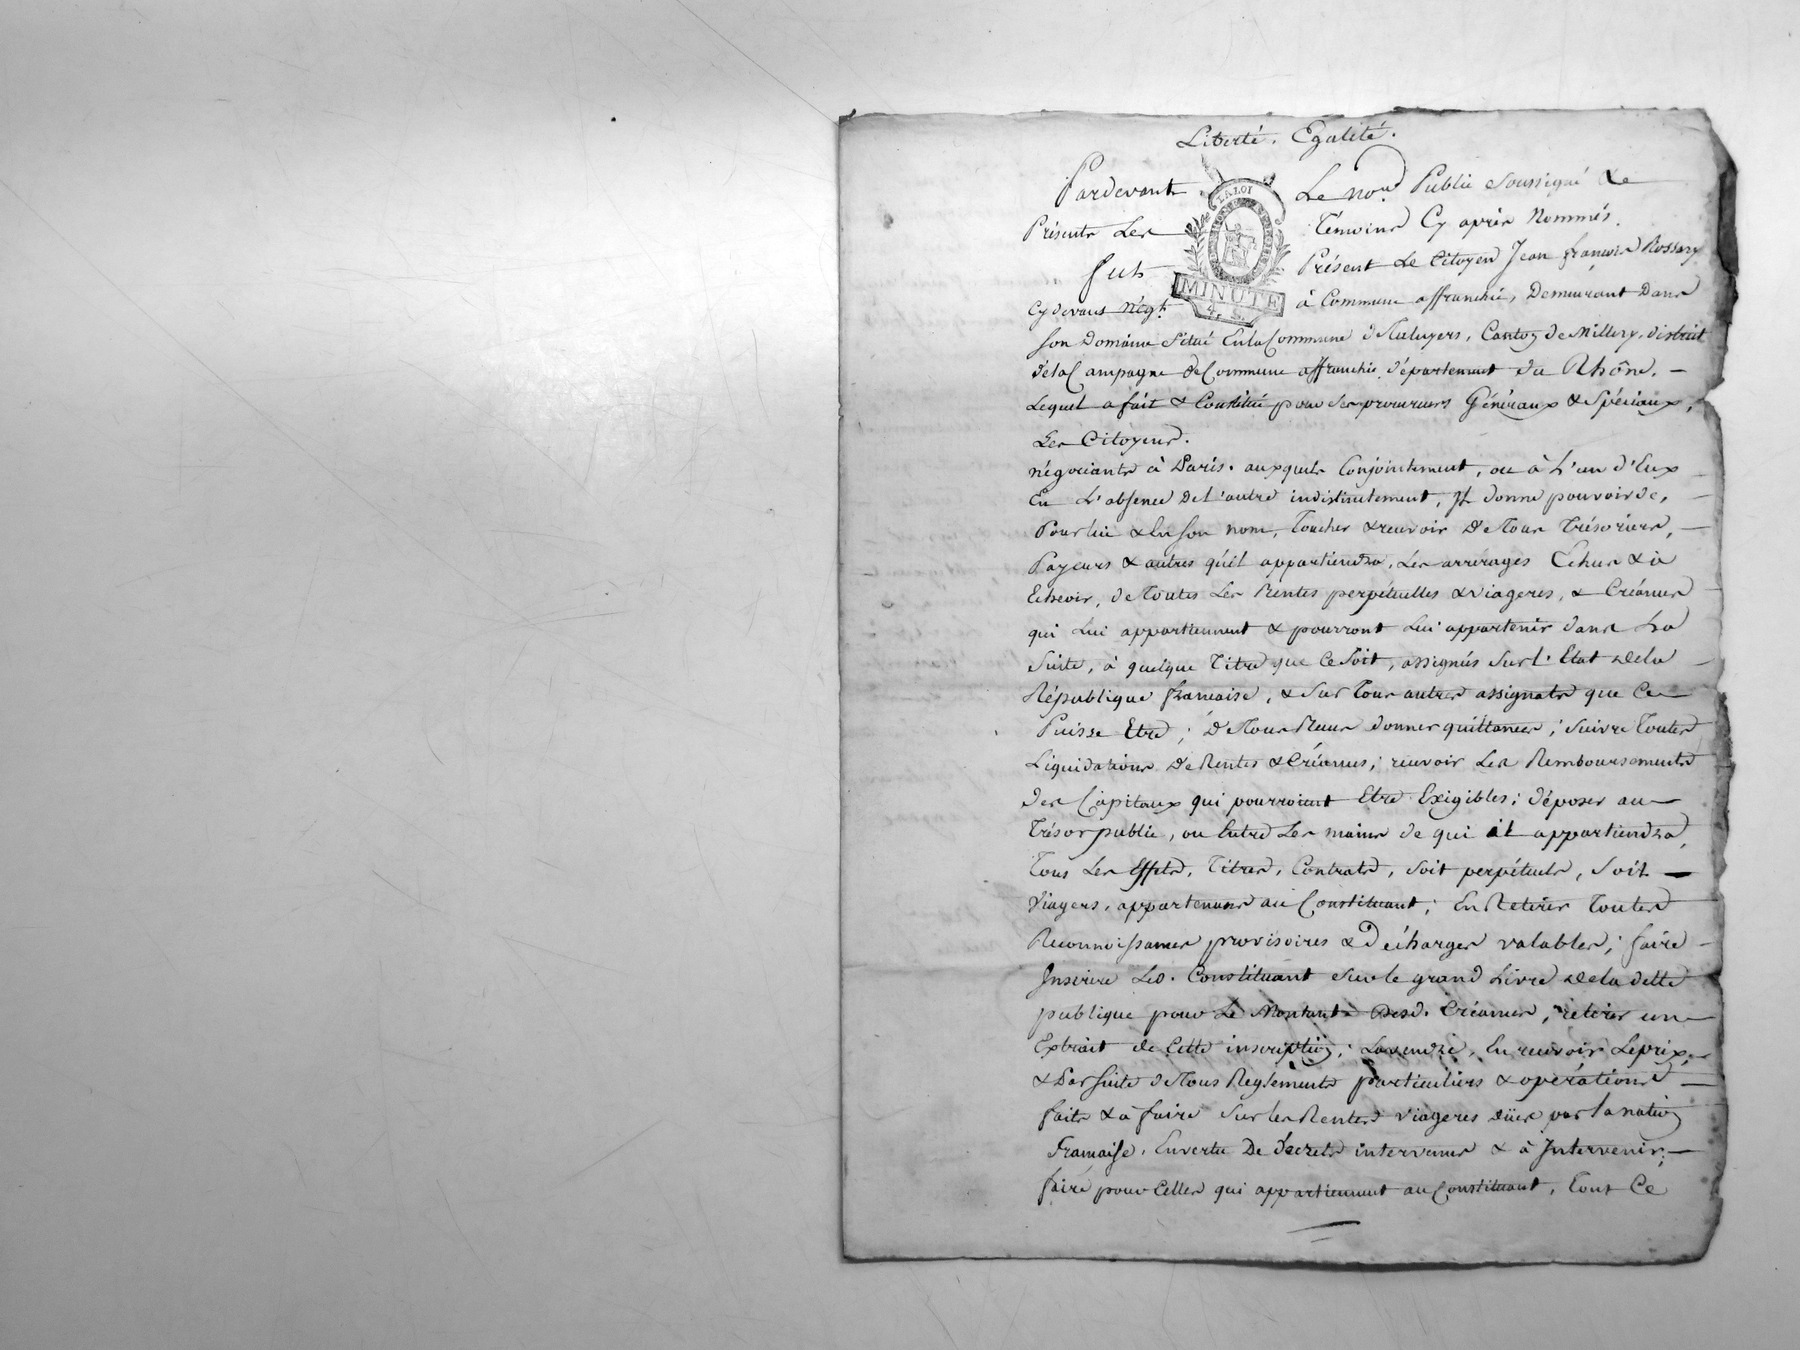 Liberté, Egalité.
Pardevant Le no.re Public soussigné & e
Présents Les Témoins Cy après Nommés,
LA LOI
fut Présent Le Citoyen Jean françois Rossary
MINUTE
4. S.
Cydevant Nég.t à Commune affranchie, Demeurant Dans
son Domaine situé En la Commune de Taluyers, Canton de Millery, district
de la Campagne de Commune affranchie, département du Rhône. —
Lequel a fait & Constitué pour ses procureurs Généraux & Spéciaux,
Les Citoyens.
négociants à Paris. auxquels Conjointement, ou à L'un d'Eux
En L'absence de L'autre indistinctement, Il donne pouvoir de,
Pour lui & En son nom, Toucher & recevoir De Tous Trésoriers, —
Payeurs & autres qu'il appartiendra, Les arrérages Echus & à
Echeoir, de Toutes Les Rentes perpétuelles & viageres, & Créances
qui Lui appartiennent & pourront Lui appartenir dans La
Suite, à quelque Titre que Ce soit, assignés sur L'Etat de la
République francaise, & sur Tous autres assignats que Ce
Puisse Etre; De Tous Reçus donner quittances; suivre Toutes
Liquidations De Rentes & Créances; recevoir Les Remboursements
des Capitaux qui pourroient Etre Exigibles; déposer au
Trésor public, ou Entre Les mains de qui il appartiendra,
Tous Les Effets, Titres, Contrats, soit perpétuels, soit —
Viagers, appartenans au Constituant; En Retirer Toutes
Reconnoissances provisoires & Décharges valables; faire
Inscrire Led. Constituant sur le grand Livre de la dette
publique pour Le Montant Desd. Créances, retirer un
Extrait de Cette inscription; La vendre, En recevoir Le prix,
& Par suite de Tous Reglements particuliers & opérations —
faits & à faire sur les Rentes viageres düer par la nation
Francaise, En vertu De Décrets intervenus & à Intervenir; —
faire pour Celles qui appartiennent au Constituant, tout Ce